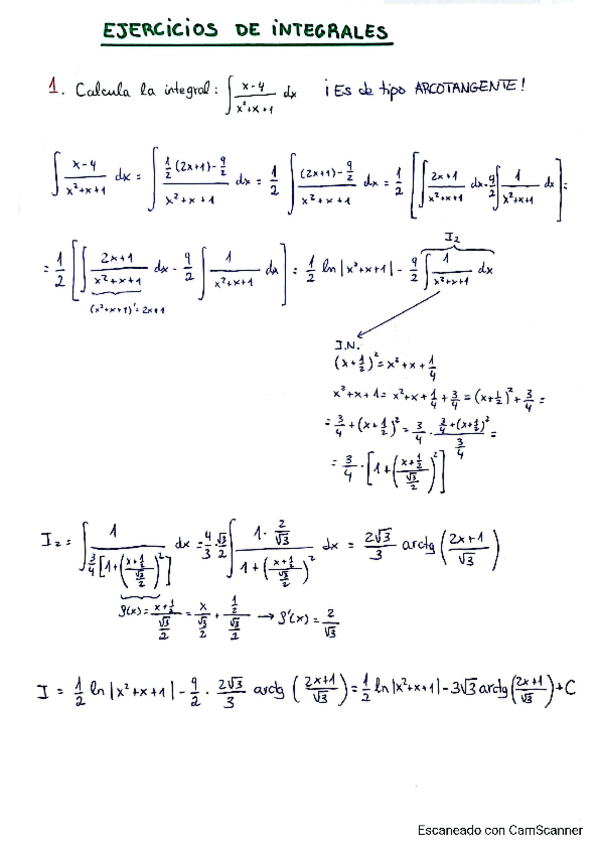 EJERCICIOS DE INTEGRALES
1. Calcula la integral: ∫ (x-4)/(x²+x+1) dx ¡Es de tipo ARCOTANGENTE!
∫ (x-4)/(x²+x+1) dx = ∫ (1/2 (2x+1) - 9/2)/(x²+x+1) dx = 1/2 ∫ ((2x+1) - 9/2)/(x²+x+1) dx = 1/2 [∫ (2x+1)/(x²+x+1) dx - 9/2 ∫ 1/(x²+x+1) dx] =
= 1/2 [∫ (2x+1)/(x²+x+1) dx - 9/2 ∫ 1/(x²+x+1) dx] = 1/2 ln|x²+x+1| - 9/2 ∫ 1/(x²+x+1) dx
I₂
(x²+x+1)' = 2x+1
I.N.
(x+1/2)² = x²+x+1/4
x²+x+1 = x²+x+1/4+3/4 = (x+1/2)²+3/4 =
= 3/4+(x+1/2)² = 3/4 · (3/4+(x+1/2)²)/(3/4) =
= 3/4 · [1+((x+1/2)/(√3/2))²]
I₂ = ∫ 1/(3/4 [1+((x+1/2)/(√3/2))²]) dx = 4/3 · √3/2 ∫ (1 · 2/√3)/(1+((x+1/2)/(√3/2))²) dx = 2√3/3 arctg ((2x+1)/√3)
f(x) = (x+1/2)/(√3/2) = x/(√3/2) + (1/2)/(√3/2) → f'(x) = 2/√3
I = 1/2 ln|x²+x+1| - 9/2 · 2√3/3 arctg ((2x+1)/√3) = 1/2 ln|x²+x+1| - 3√3 arctg ((2x+1)/√3) + C
Escaneado con CamScanner